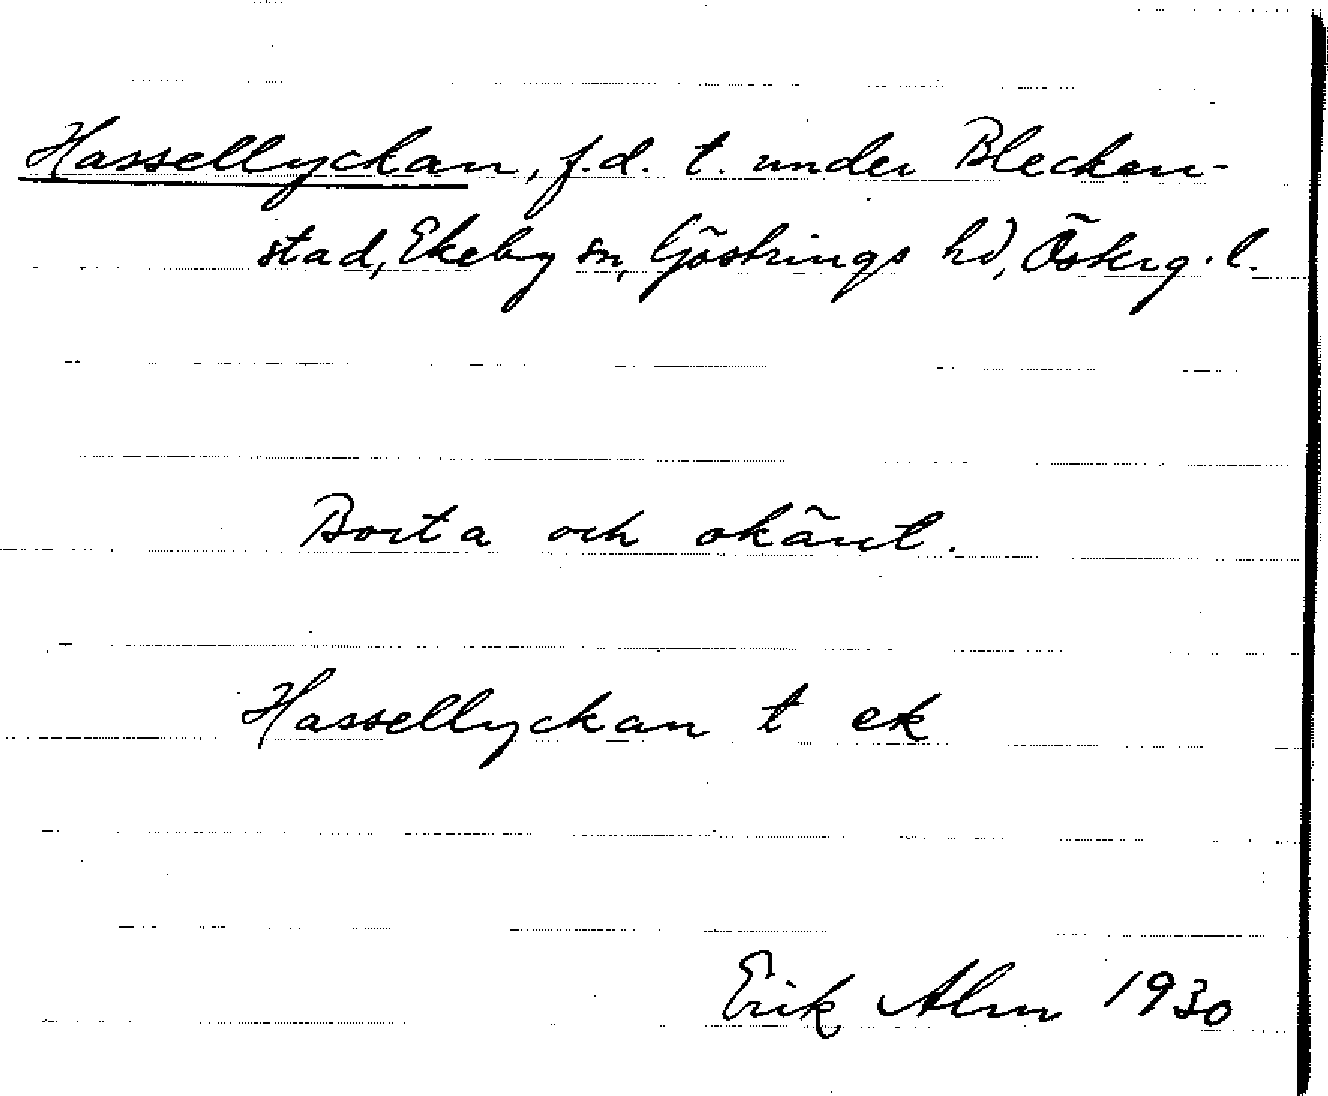 Hassellyckan, f.d. t. under Blecken-
stad, Ekeby sn, Göstrings hd, Österg. l.
Borta och okänt.
Hassellyckan t ek
Erik Alm 1930